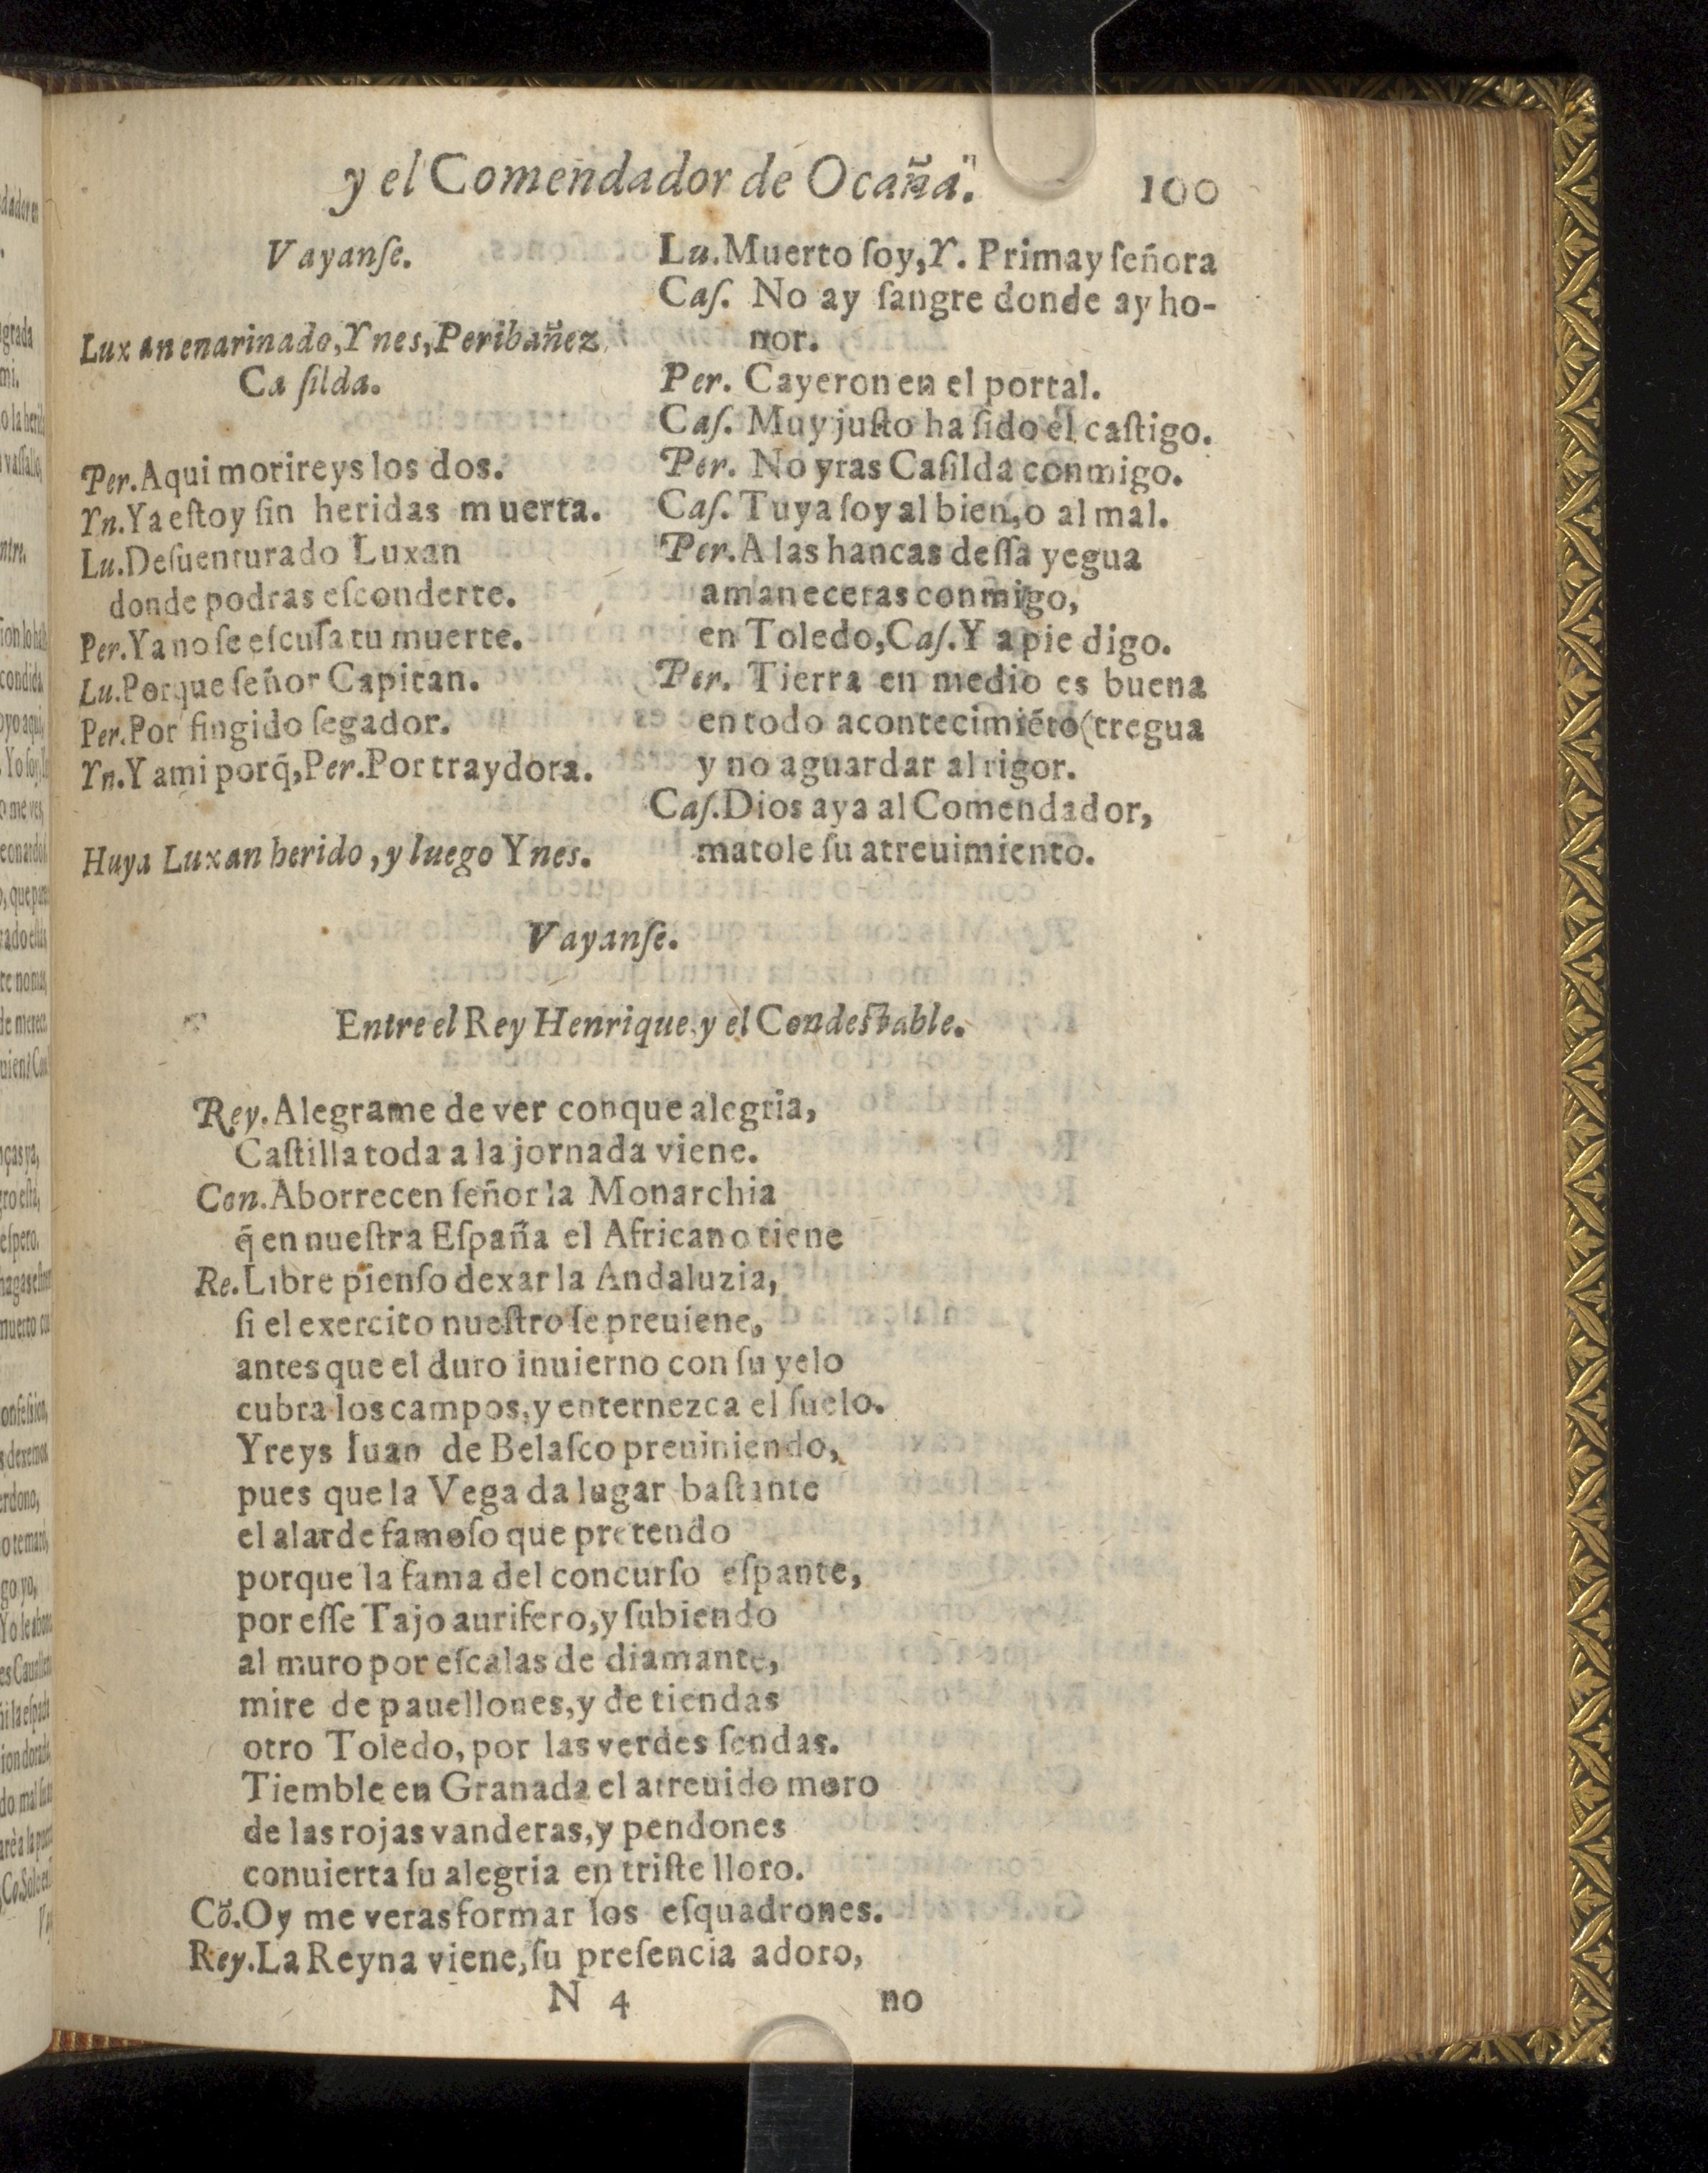 y el Comendador de Ocaña.
100
Vayanſe.
Luxan enarinado, Ynes, Peribañez
Caſilda.
Per. Aqui morireys los dos.
Yn. Ya eſtoy ſin heridas muerta.
Lu. Deſuenturado Luxan
donde podras eſconderte.
Per. Ya no ſe eſcuſa tu muerte.
Lu. Porque ſeñor Capitan.
Per. Por fingido ſegador.
Yn. Y a mi porq̃, Per. Por traydora.
Huya Luxan herido, y luego Ynes.
Lu. Muerto ſoy, Y. Prima y ſeñora
Caſ. No ay ſangre donde ay ho-
nor.
Per. Cayeron en el portal.
Caſ. Muy juſto ha ſido el caſtigo.
Per. No yras Caſilda conmigo.
Caſ. Tuya ſoy al bien, o al mal.
Per. A las hancas deſſa yegua
amaneceras conmigo,
en Toledo, Caſ. Y a pie digo.
Per. Tierra en medio es buena
en todo acontecimiẽto (tregua
y no aguardar al rigor.
Caſ. Dios aya al Comendador,
matole ſu atreuimiento.
Vayanſe.
Entre el Rey Henrique y el Condeſtable.
Rey. Alegrame de ver con que alegria,
Caſtilla toda a la jornada viene.
Con. Aborrecen ſeñor la Monarchia
q̃ en nueſtra Eſpaña el Africano tiene
Re. Libre pienſo dexar la Andaluzia,
ſi el exercito nueſtro ſe preuiene,
antes que el duro inuierno con ſu yelo
cubra los campos, y enternezca el ſuelo.
Yreys Iuan de Belaſco preuiniendo,
pues que la Vega da lugar baſtante
el alarde famoſo que pretendo
porque la fama del concurſo eſpante,
por eſſe Tajo aurifero, y ſubiendo
al muro por eſcalas de diamante,
mire de pauellones, y de tiendas
otro Toledo, por las verdes ſendas.
Tiemble en Granada el atreuido moro
de las rojas vanderas, y pendones
conuierta ſu alegria en triſte lloro.
Cõ. Oy me veras formar los eſquadrones.
Rey. La Reyna viene, ſu preſencia adoro,
N 4
no